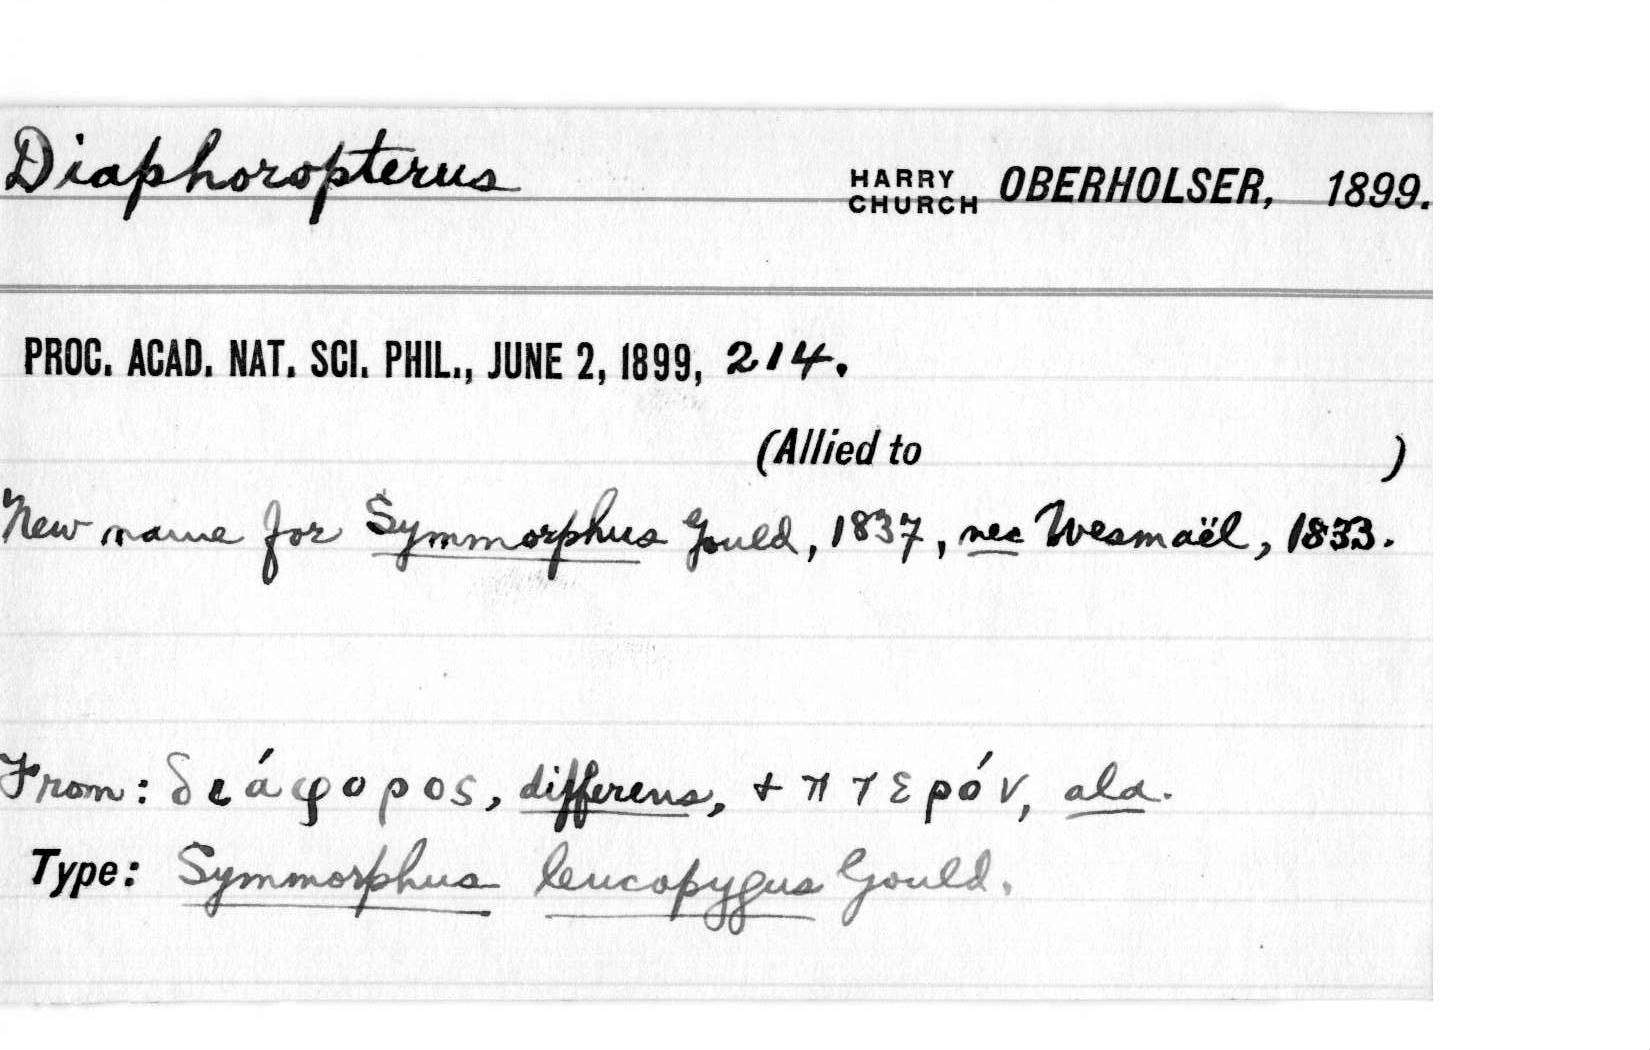 Diaphoropterus HARRY CHURCH OBERHOLSER, 1899.
PROC. ACAD. NAT. SCI. PHIL., JUNE 2, 1899, 214.
(Allied to )
New name for Symmorphus Gould, 1837, nec Wesmaël, 1833.
From: διάφορος, differens, + πτερόν, ala.
Type: Symmorphus leucopygus Gould.